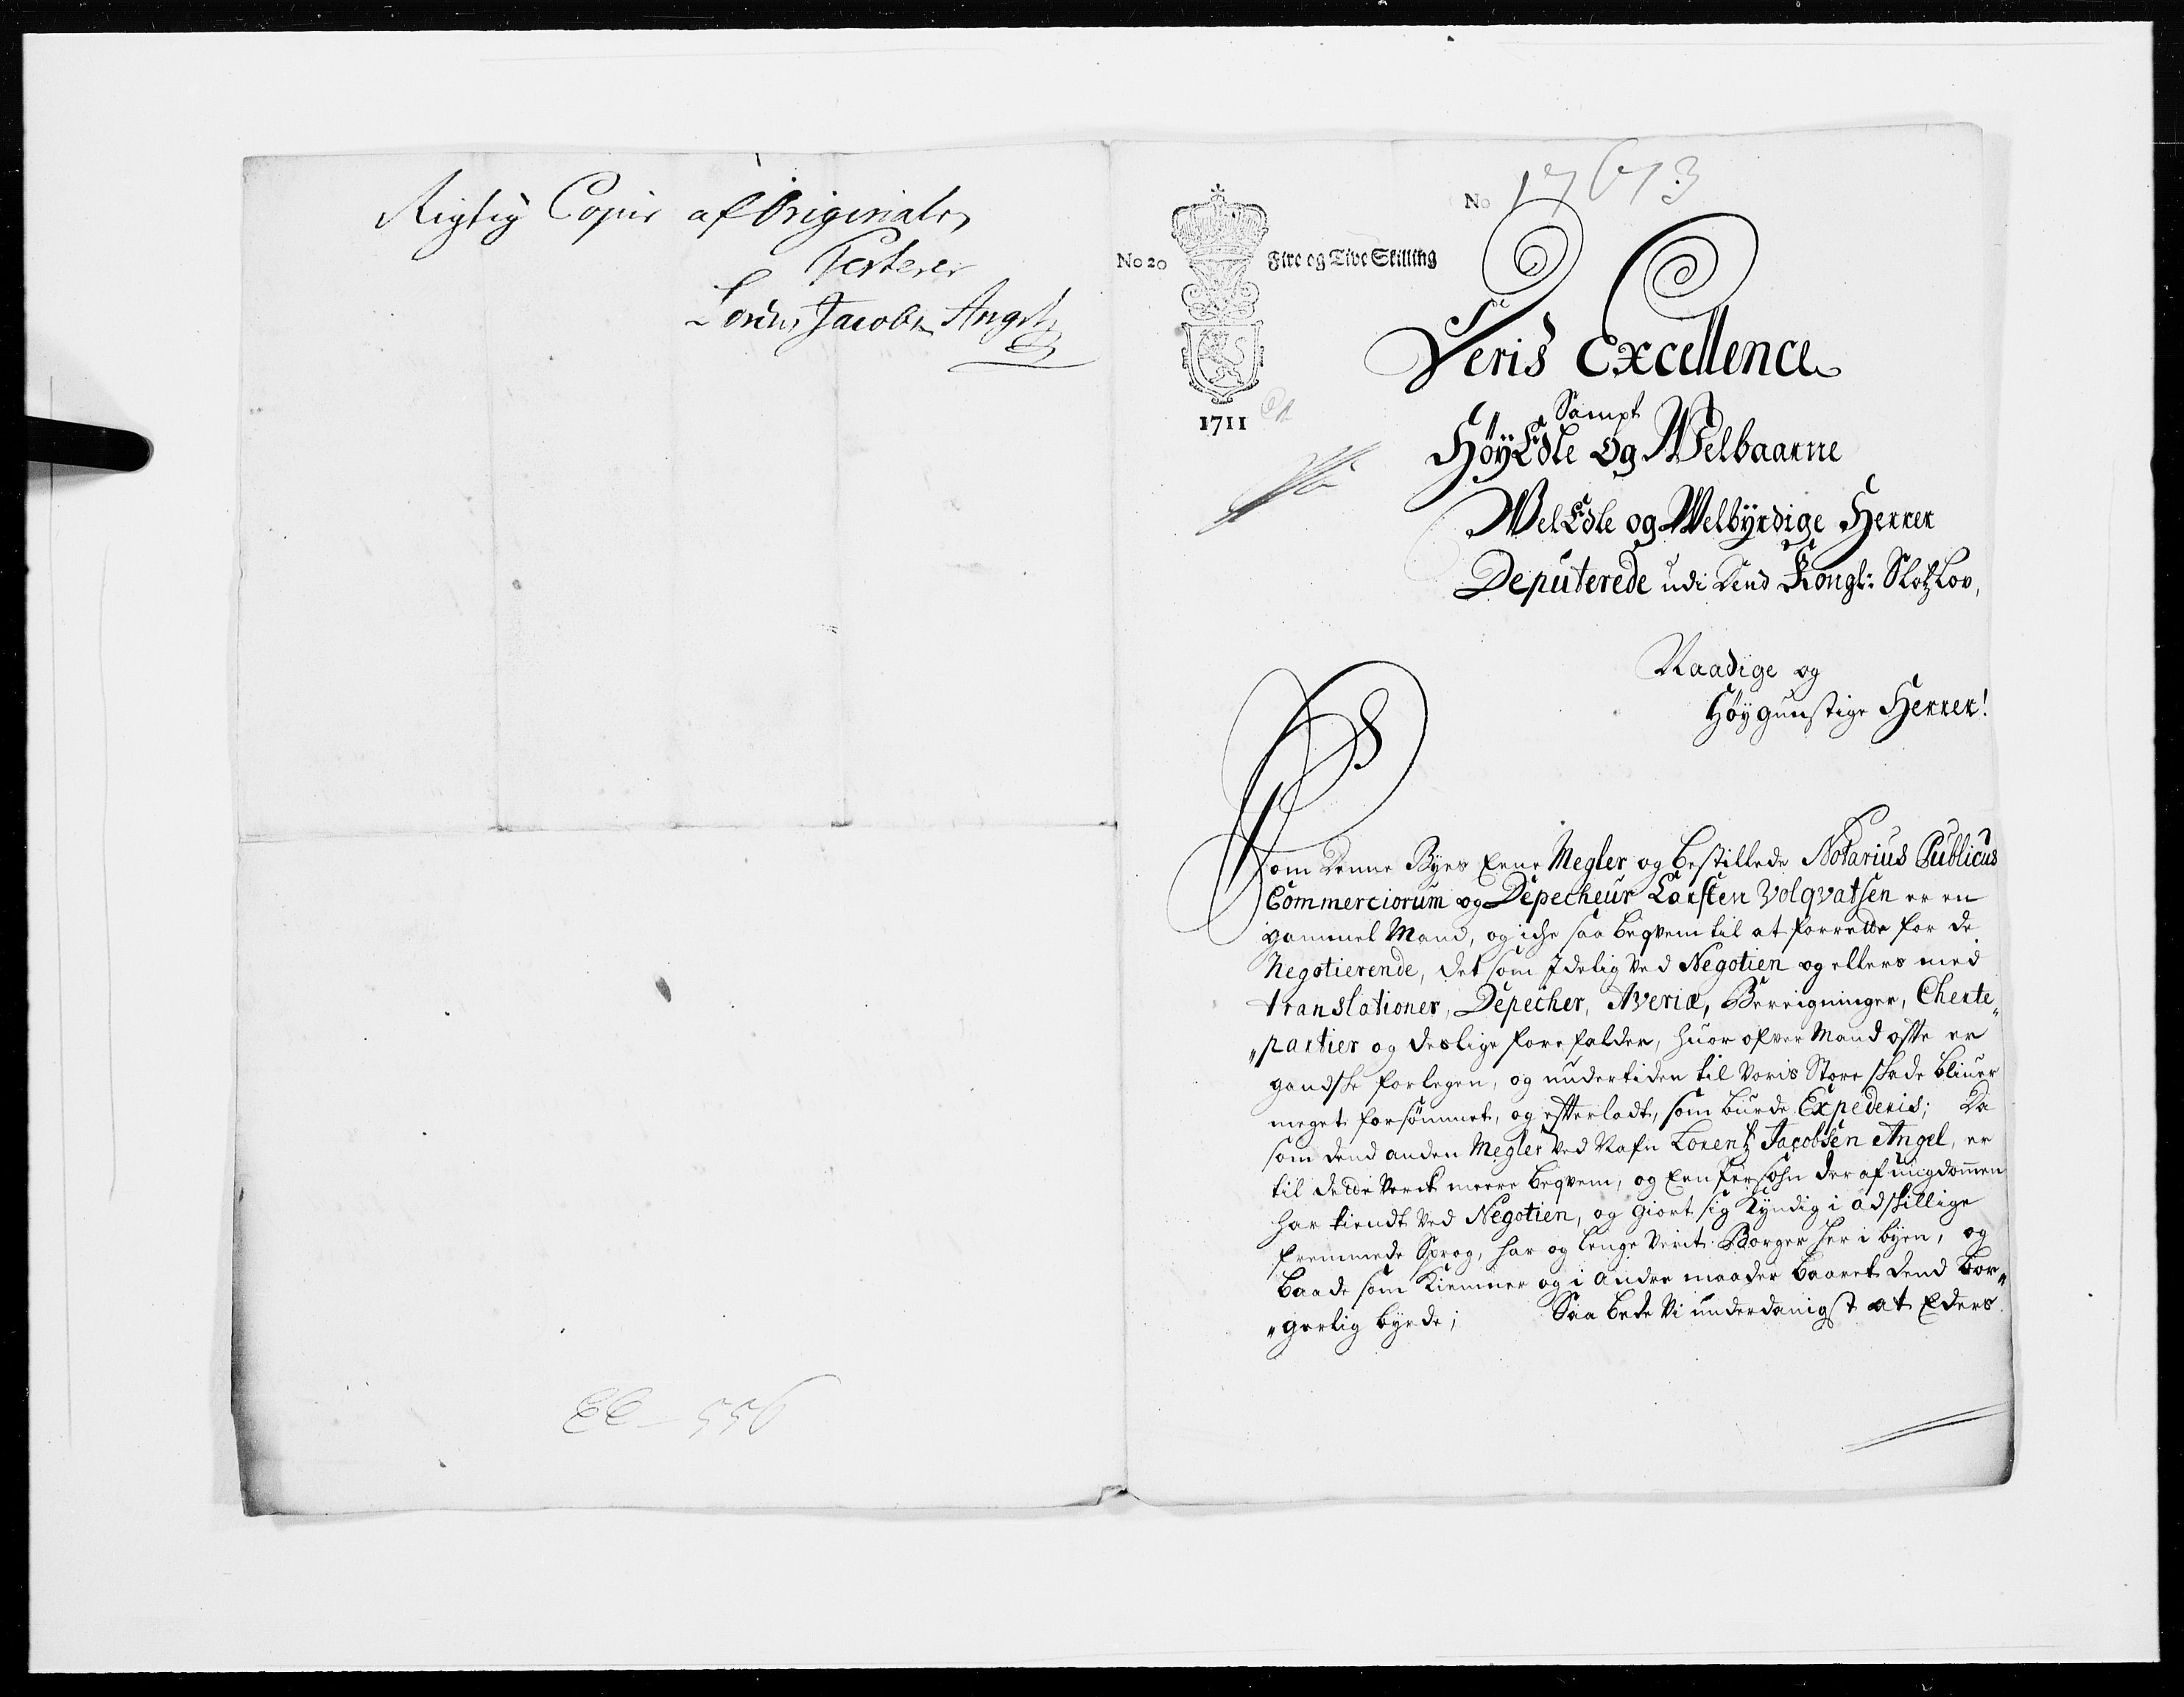 Rigtig Copie af Originalen
Testerer
Lorens Jacobs. Angel
EE - 556
No 17673
No 20 Fire og Tive Skilling
1711
Deris Excellence
Sampt
HöyEdle og Welbaarne
WelEdle og Welbÿrdige Herrer
Deputerede udi dend Kongl: SlotzLov,
Naadige og
Höÿgunstige Herrer!
Som denne Byes Eene Megler og bestillede Notarius Publicus
Commerciorum og Depecheur Karsten Volqvatsen er en
gammel Mand, og iche saa beqvem til at forrette for de
Negotierende, det som Idelig ved Negotien og ellers med
translationer, Depecher, Averiæ, Berreigninger, Cherte„
„partier og deslige forefalder, huor ofver Mand ofte er
gandske forlegen, og undertiden til voris Store skade bliuer
meget forsömmet, og efterladt, som burde Expederis; Da
som dend anden Megler ved Nafn Lorentz Jacobsen Angel, er
til dette verck meere beqvem, og Een Persohn der af ungdommen
har tiendt ved Negotien, og giort sig Kÿndig i adskillige
fremmede Sprog, har og lenge verit Borger her i byen, og
baade som Kiemner og i andre maader baaret dend bor„
„gerlig byrde; Saa bede Vi underdanigst at Eders